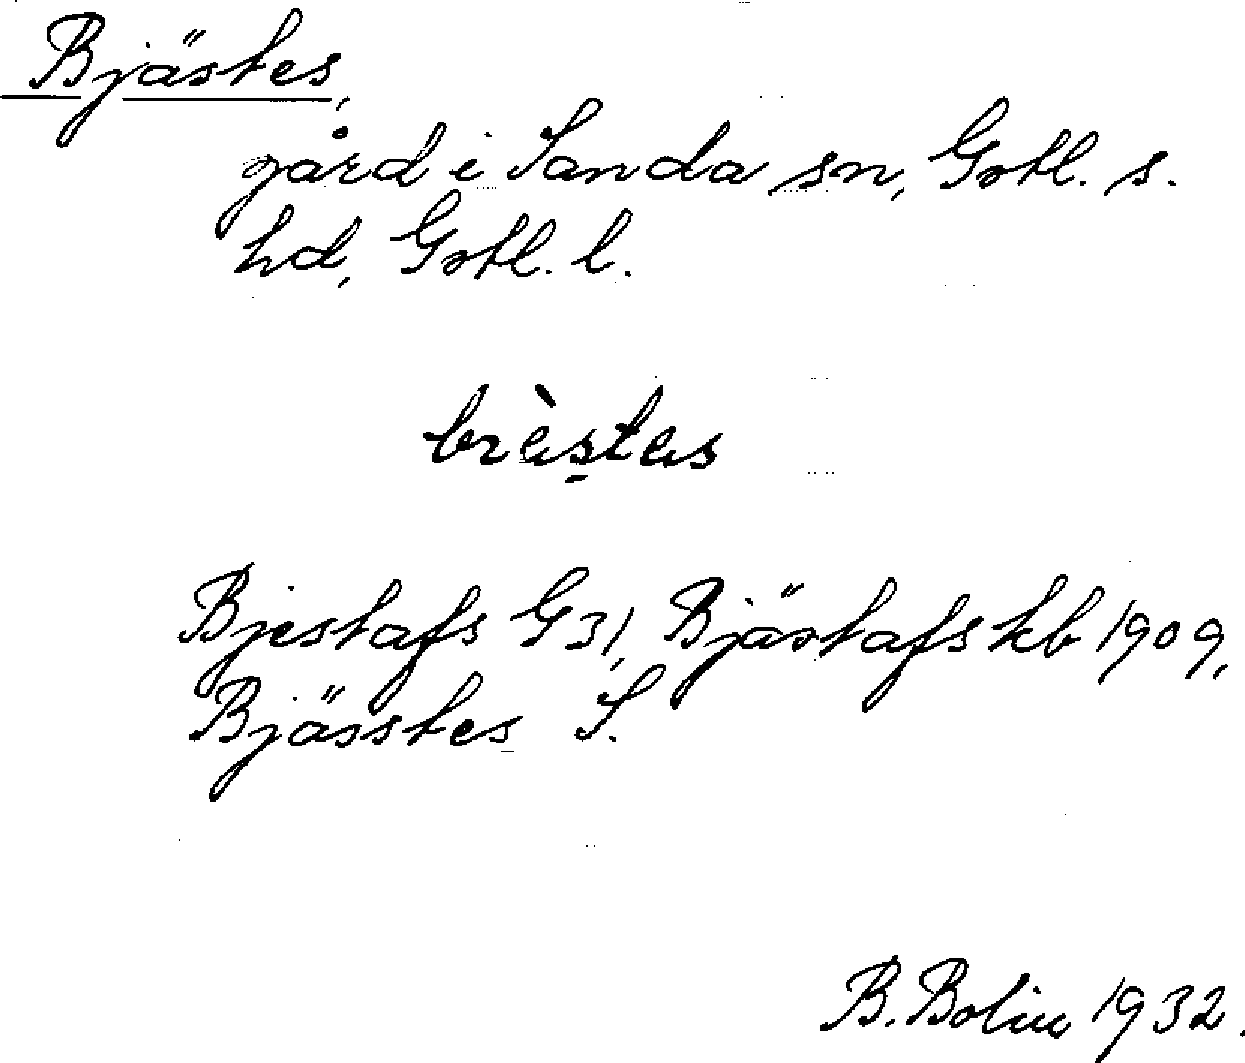 Bjästes,
gård i Sanda sn, Gotl. s.
hd, Gotl. l.
brèstas
Bjestafs G31, Bjästafs kb 1909,
Bjässtes S.
B. Bolin 1932.